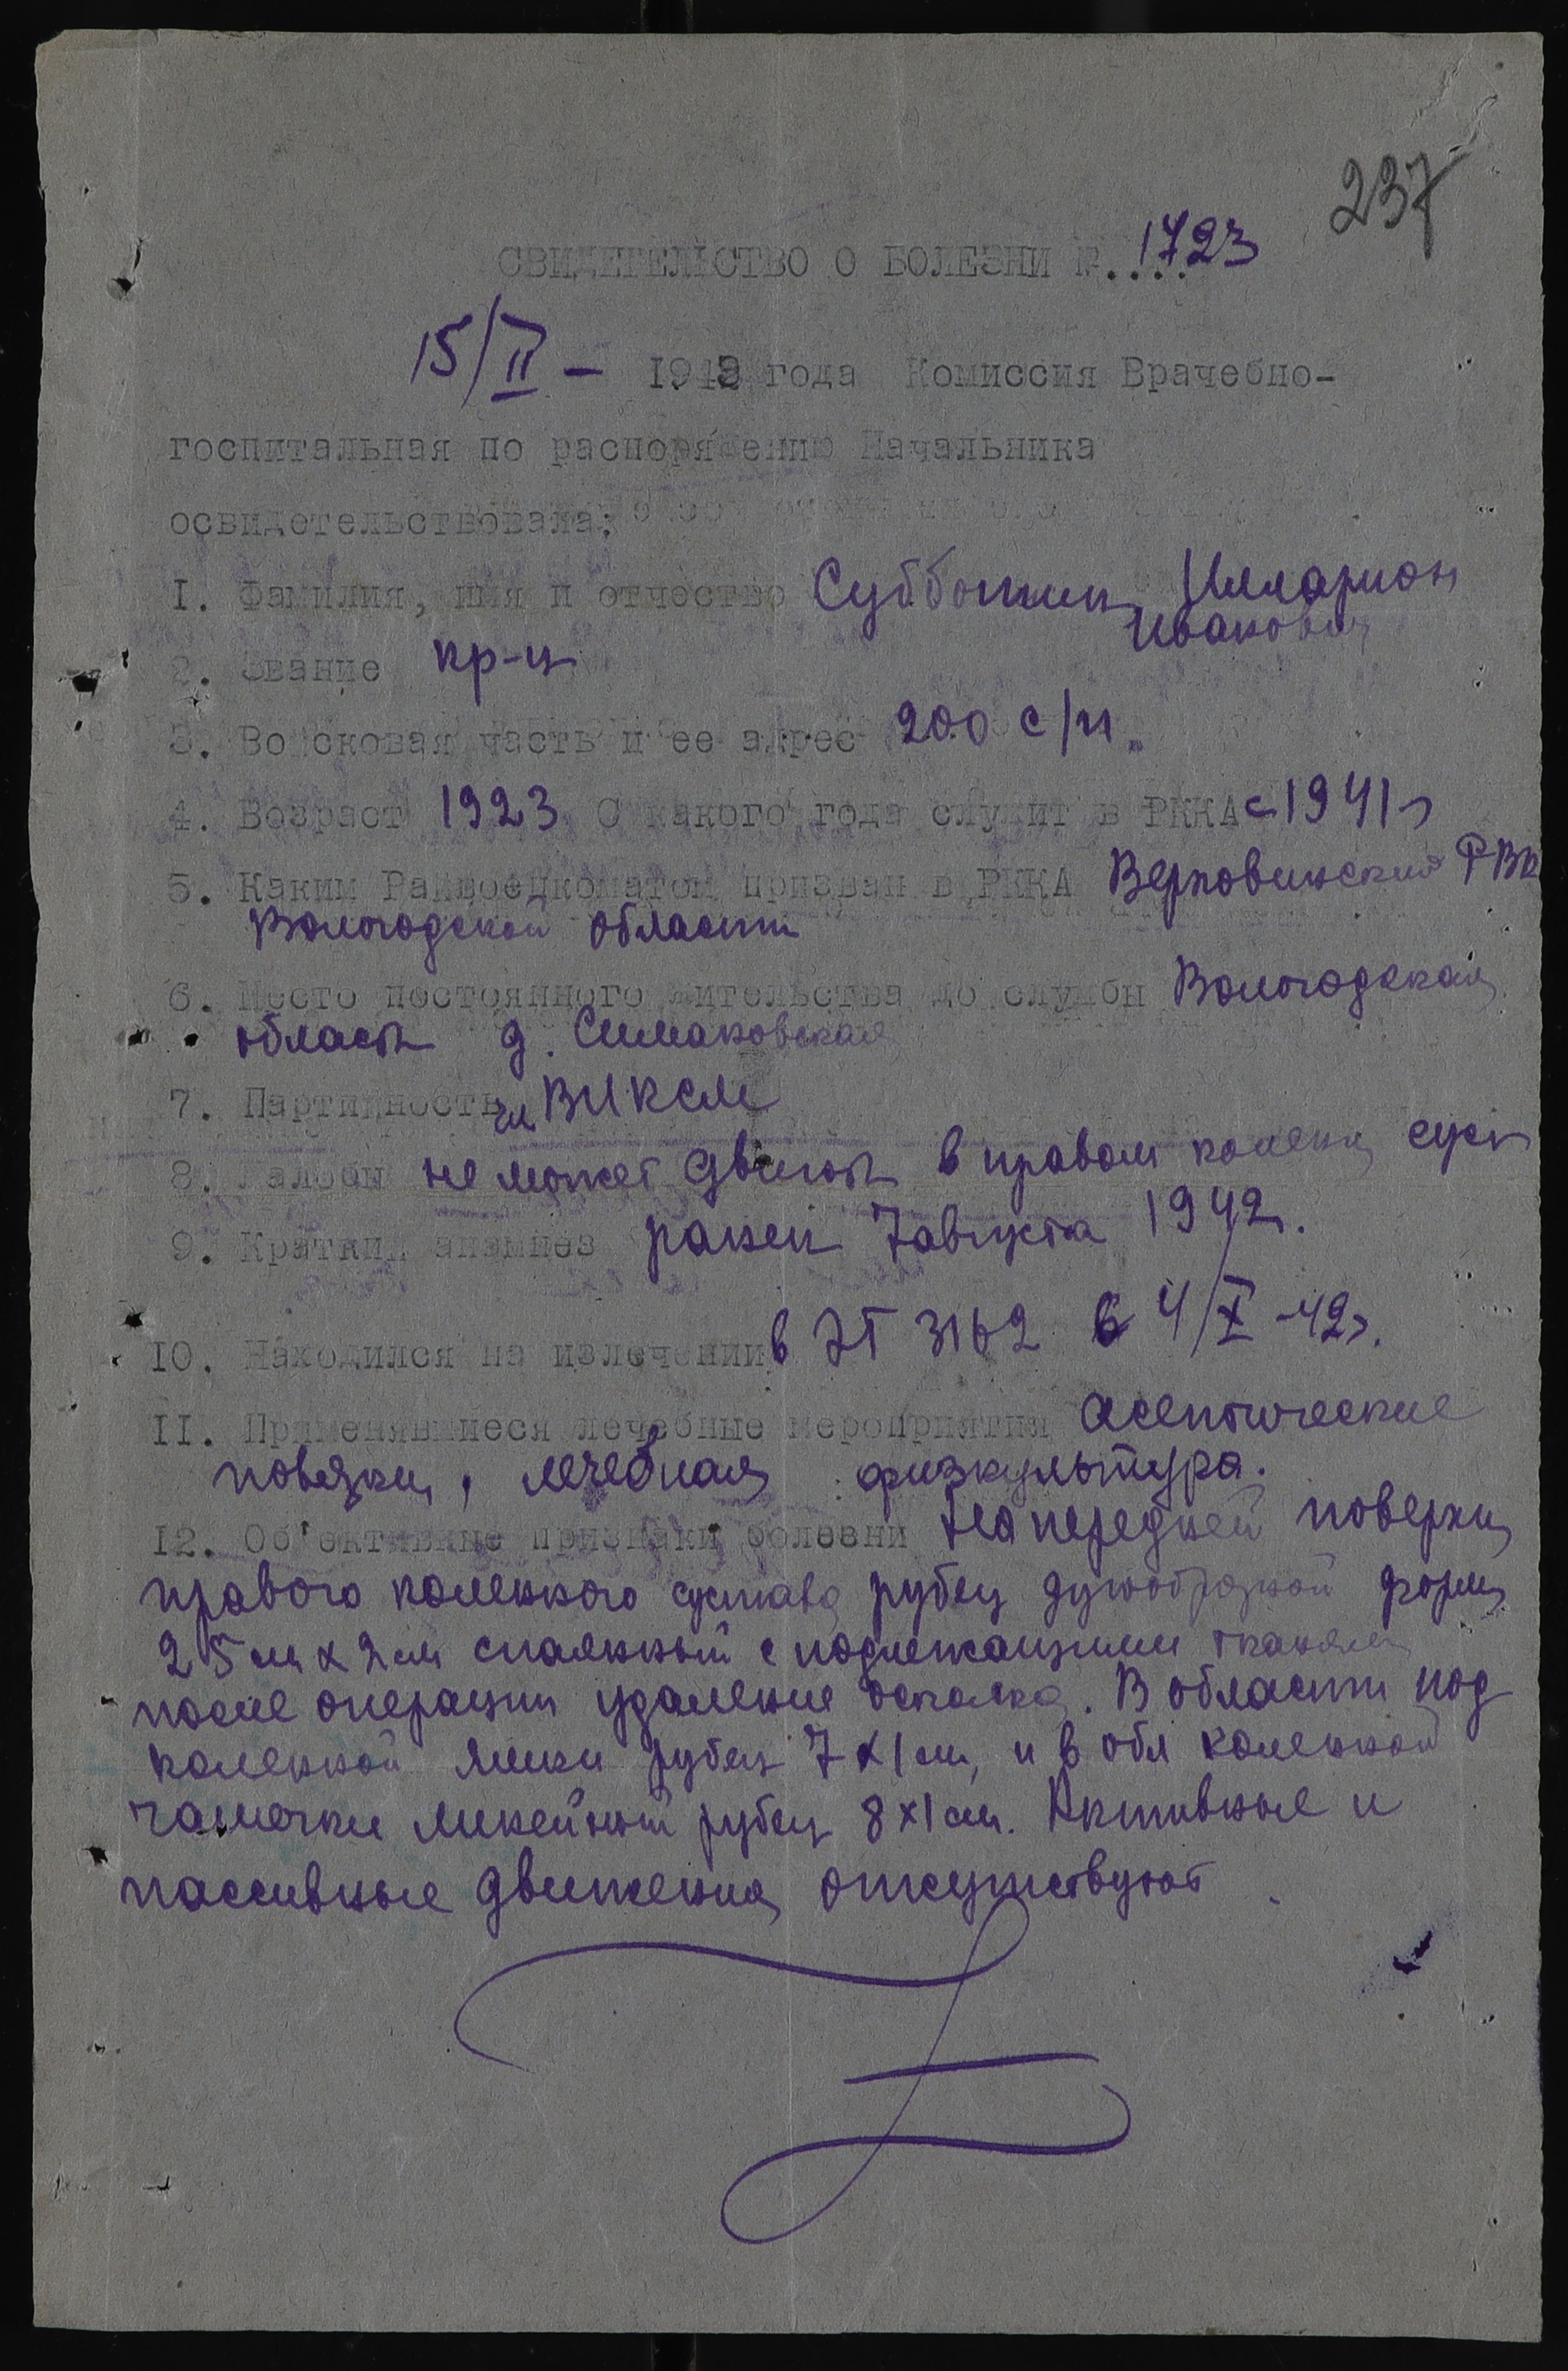 237
СВИДЕТЕЛЬСТВО О БОЛЕЗНИ №.... 1723
15/II – 1943 года Комиссия Врачебно-
госпитальная по распоряжению Начальника
освидетельствовала:
I. Фамилия, имя и отчество Субботин Илларион
Иванович
2. Звание кр-ц
3. Войсковая часть и ее адрес 200 с/п
4. Возраст 1923 С какого года служит в РККА с 1941 г
5. Каким Райвоенкоматом призван в РККА Верховинский РВК
Вологодской области
6. Место постоянного жительства до службы Вологодская
область д. Симаковская
7. Партийность чл ВЛКСМ
8. Жалобы не может двигать в правом колен суст
9. Краткий анамнез ранен 7 августа 1942г.
10. Находился на излечении в ЭГ 3162 с 4/X-42г.
II. Применявшиеся лечебные мероприятия асептические
повязки, лечебная физкультура.
12. Об'ективные признаки болезни На передней поверхн
правого коленного сустава рубец дугообразной формы
25 см х 2 см спаянный с подлежащими тканями
после операции удаление осколка. В области под
коленной ямки рубец 7 х 1 см, и в обл коленной
чашечки линейный рубец 8 х 1 см. Активные и
пассивные движения отсутствуют